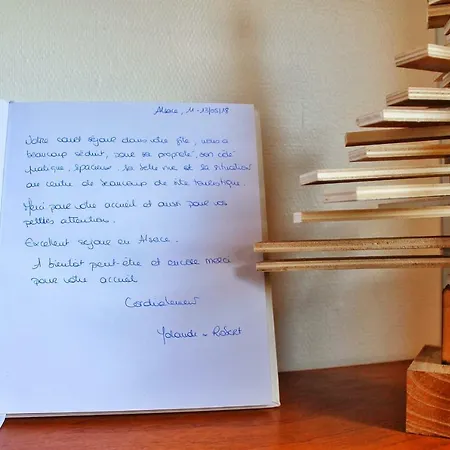 Alsace, 11-13/05/18
Notre court séjour dans votre gîte, nous a
beaucoup séduit, pour sa propreté, son côté
pratique, spacieux, la belle vue et la situation
au centre de beaucoup de site touristique.
Merci pour votre accueil et aussi pour vos
petites attention.
Excellent séjour en Alsace.
A bientôt peut-être et encore merci
pour votre accueil
Cordialement
Yolande - Robert